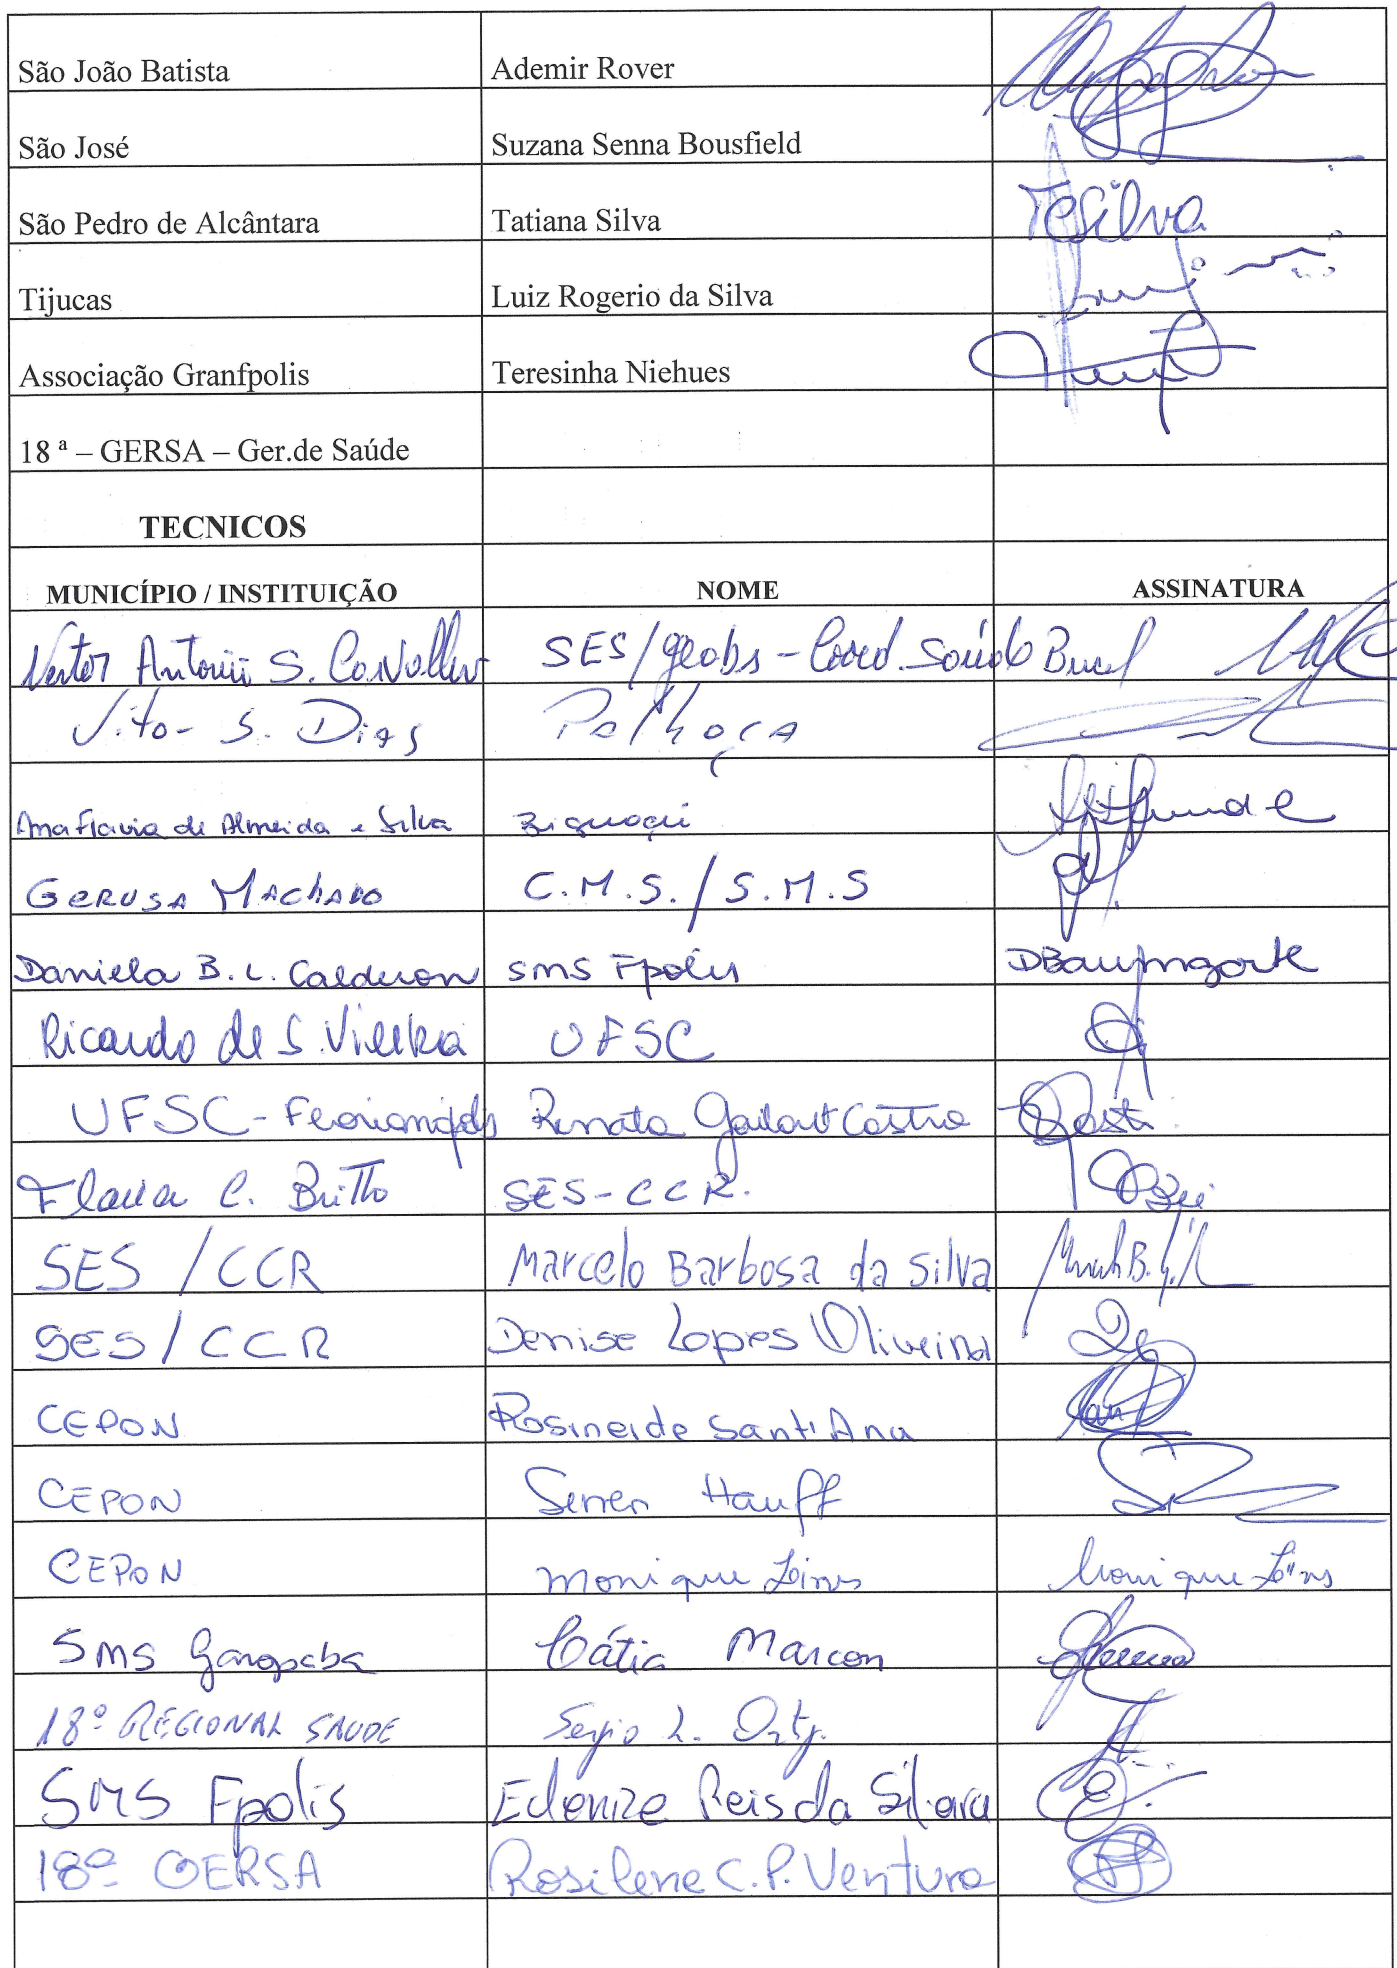 São João Batista Ademir Rover
São José Suzana Senna Bousfield
São Pedro de Alcântara Tatiana Silva TeSilva
Tijucas Luiz Rogerio da Silva
Associação Granfpolis Teresinha Niehues
18 ª – GERSA – Ger.de Saúde
TECNICOS
MUNICÍPIO / INSTITUIÇÃO NOME ASSINATURA
Antonio S. Carvalho SES/geobs - Coord. Saúde Bucal
Vitor S. Dias Palhoça
Ana Flavia de Almeida e Silva Biguaçu
GERUSA MACHADO C.M.S./S.M.S
Daniela B. L. Calderon SMS Fpolis DBaumgarte
Ricardo de S. Vieira UFSC
UFSC - Florianópolis Renata Castro
Flavia C. Britto SES-CCR.
SES / CCR Marcelo Barbosa da Silva
SES / CCR Denise Lopes Oliveira
CEPON Rosineide Sant'Ana
CEPON Hauff
CEPON Monique Lins Monique Lins
SMS Garopaba Cátia Marcon
18º REGIONAL SAUDE Sergio L.
SMS Fpolis Edenize Reis da Silveira
18ª GERSA Rosilene C.P. Ventura